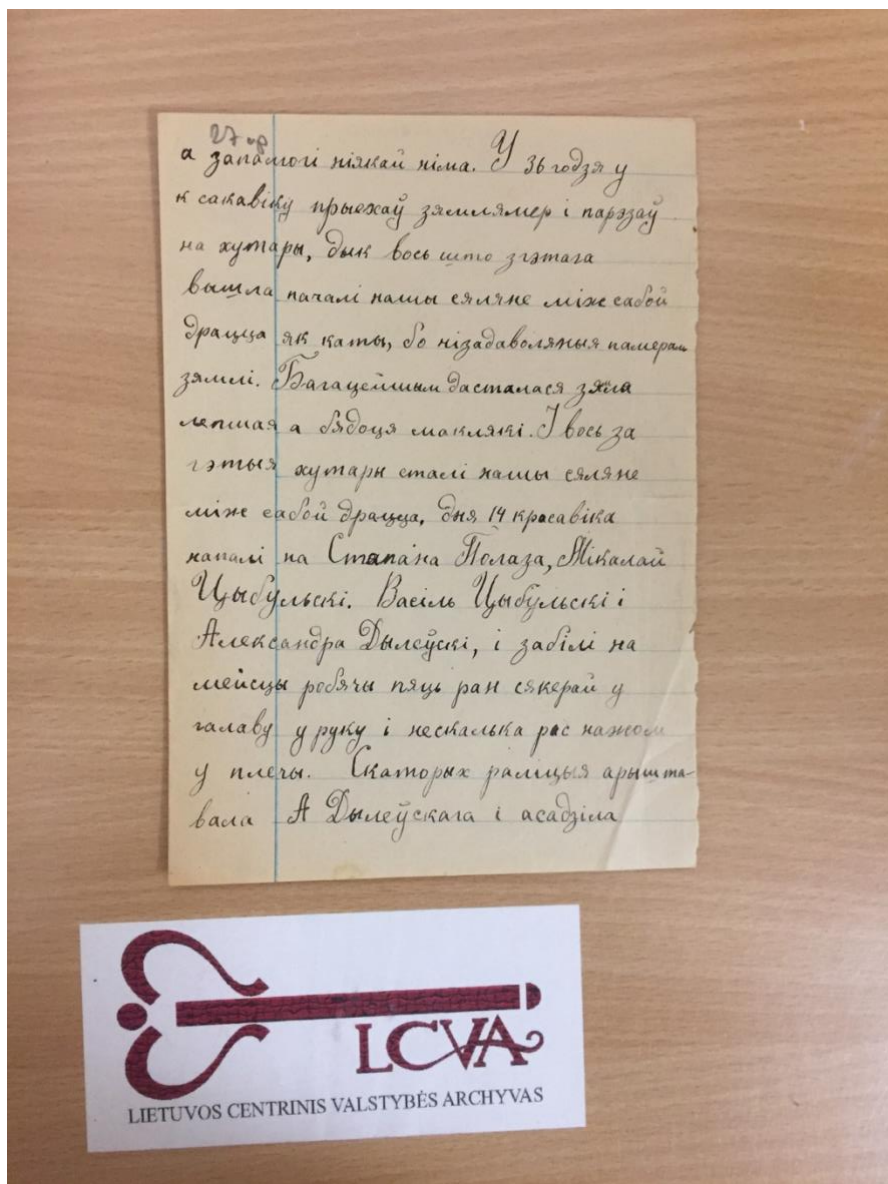 27 ар
а запамогі ніякай німа. У 36 годзя у
к сакавіку прыехаў зямлямер і парэзаў
на хутары, дык вось што згэтага
вышла пачалі нашы сяляне між сабой
драцца як каты, бо нізадаволяныя памерам
зямлі. Багацейшым дасталася зяла
лепшая а бядоця маклякі. І вось за
гэтыя хутары сталі нашы сяляне
між сабой драцца, дня 14 красавіка
напалі на Стапана Полаза, Мікалай
Цыбульскі. Васіль Цыбульскі і
Александра Дылеўскі, і забілі на
мейсцы робячы пяць ран сякерай у
галаву у руку і нескалька рас нажом
у плечы. Скаторых паліцыя арышта-
вала А Дылеўскага і асадзіла
LCVA
LIETUVOS CENTRINIS VALSTYBĖS ARCHYVAS